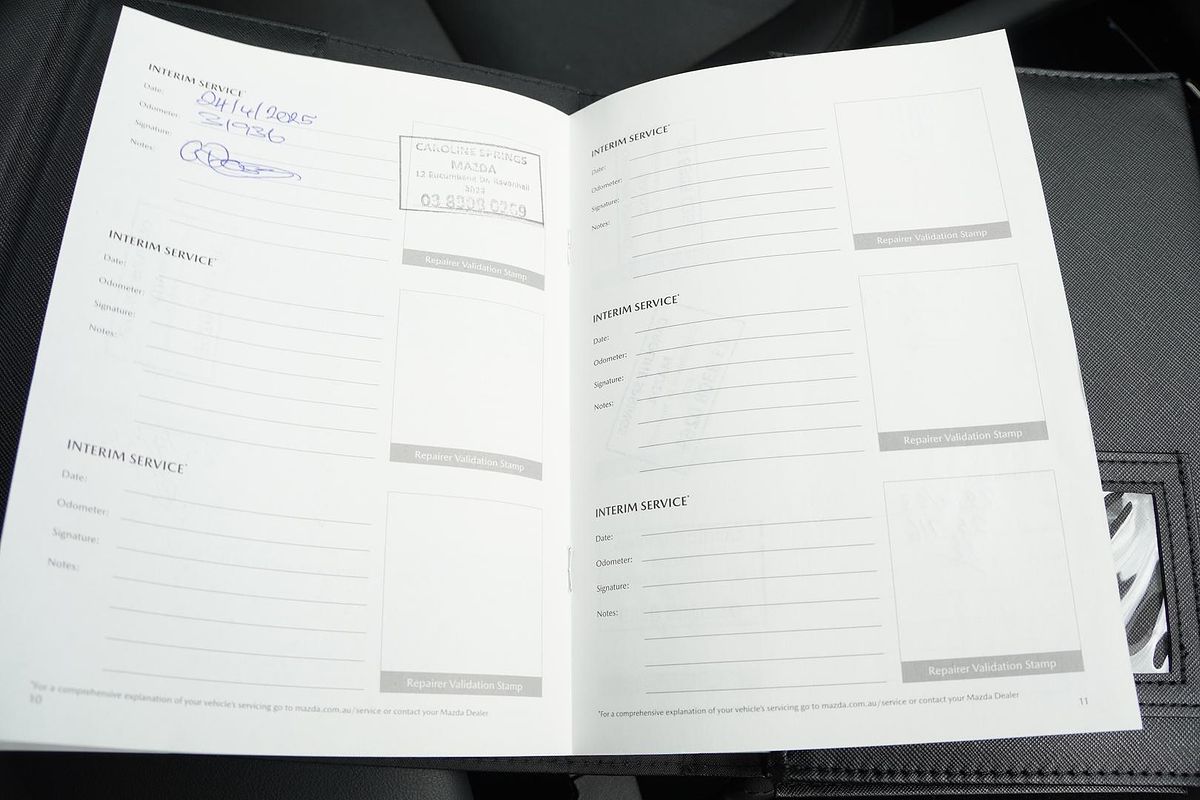 INTERIM SERVICE*
Date: 24/4/2025
Odometer: 31936
Signature:
Notes:
CAROLINE SPRINGS
MAZDA
12 Eucumbene Dr, Ravenhall
3023
03 8308 0269
Repairer Validation Stamp
INTERIM SERVICE*
Date:
Odometer:
Signature:
Notes:
Repairer Validation Stamp
INTERIM SERVICE*
Date:
Odometer:
Signature:
Notes:
Repairer Validation Stamp
*For a comprehensive explanation of your vehicle's servicing go to mazda.com.au/service or contact your Mazda Dealer
10
INTERIM SERVICE*
Date:
Odometer:
Signature:
Notes:
Repairer Validation Stamp
INTERIM SERVICE*
Date:
Odometer:
Signature:
Notes:
Repairer Validation Stamp
INTERIM SERVICE*
Date:
Odometer:
Signature:
Notes:
Repairer Validation Stamp
*For a comprehensive explanation of your vehicle's servicing go to mazda.com.au/service or contact your Mazda Dealer
11